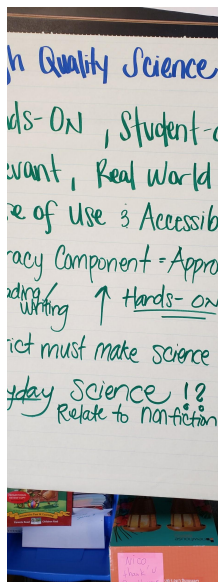 gh Quality Science
ds-ON , Student-c
evant , Real World
e of Use & Accessib
racy Component = Appro
ading/
writing ↑ Hands-ON
rict must make science
yday Science !?
Relate to nonfiction
Nico